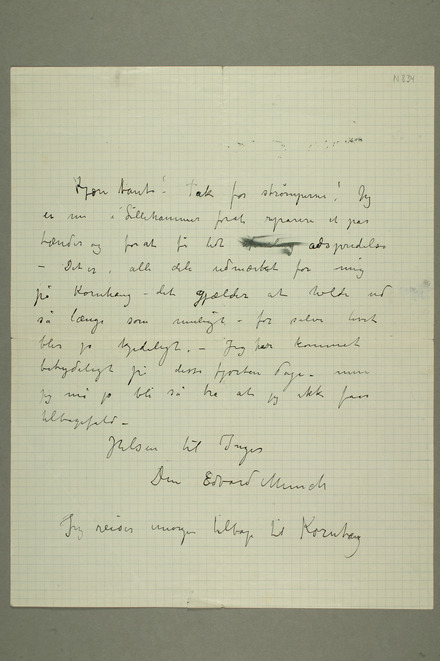 N 834
Kjære Tante! Tak for strømperne! Jeg
er nu i Lillehammer forat reparere et par
tænder og forat få lidt adspredelse
– Det er i alle dele udmærket for mig
på Kornhaug – det gjælder at holde ud
så længe som muligt – for selve
blir jo kjedeligt. – Jeg har kommet
betydeligt på disse fjorten dage – men
jeg må jo bli så bra at jeg ikke faar
tilbagefald –
Hilsen til Inger
Din Edvard Munch
Jeg reiser imorgen tilbage til Kornhaug